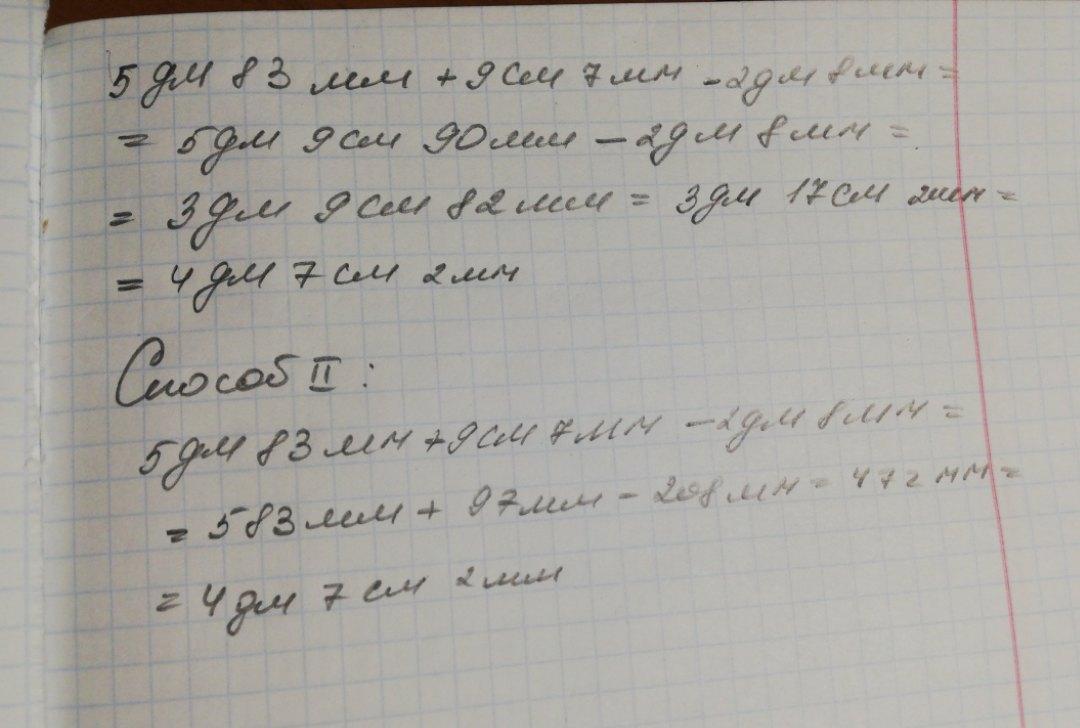 5 дм 83 мм + 9 см 7 мм - 2 дм 8 мм =
= 5 дм 9 см 90 мм - 2 дм 8 мм =
= 3 дм 9 см 82 мм = 3 дм 17 см 2 мм =
= 4 дм 7 см 2 мм
Способ II :
5 дм 83 мм + 9 см 7 мм - 2 дм 8 мм =
= 583 мм + 97 мм - 208 мм = 472 мм =
= 4 дм 7 см 2 мм